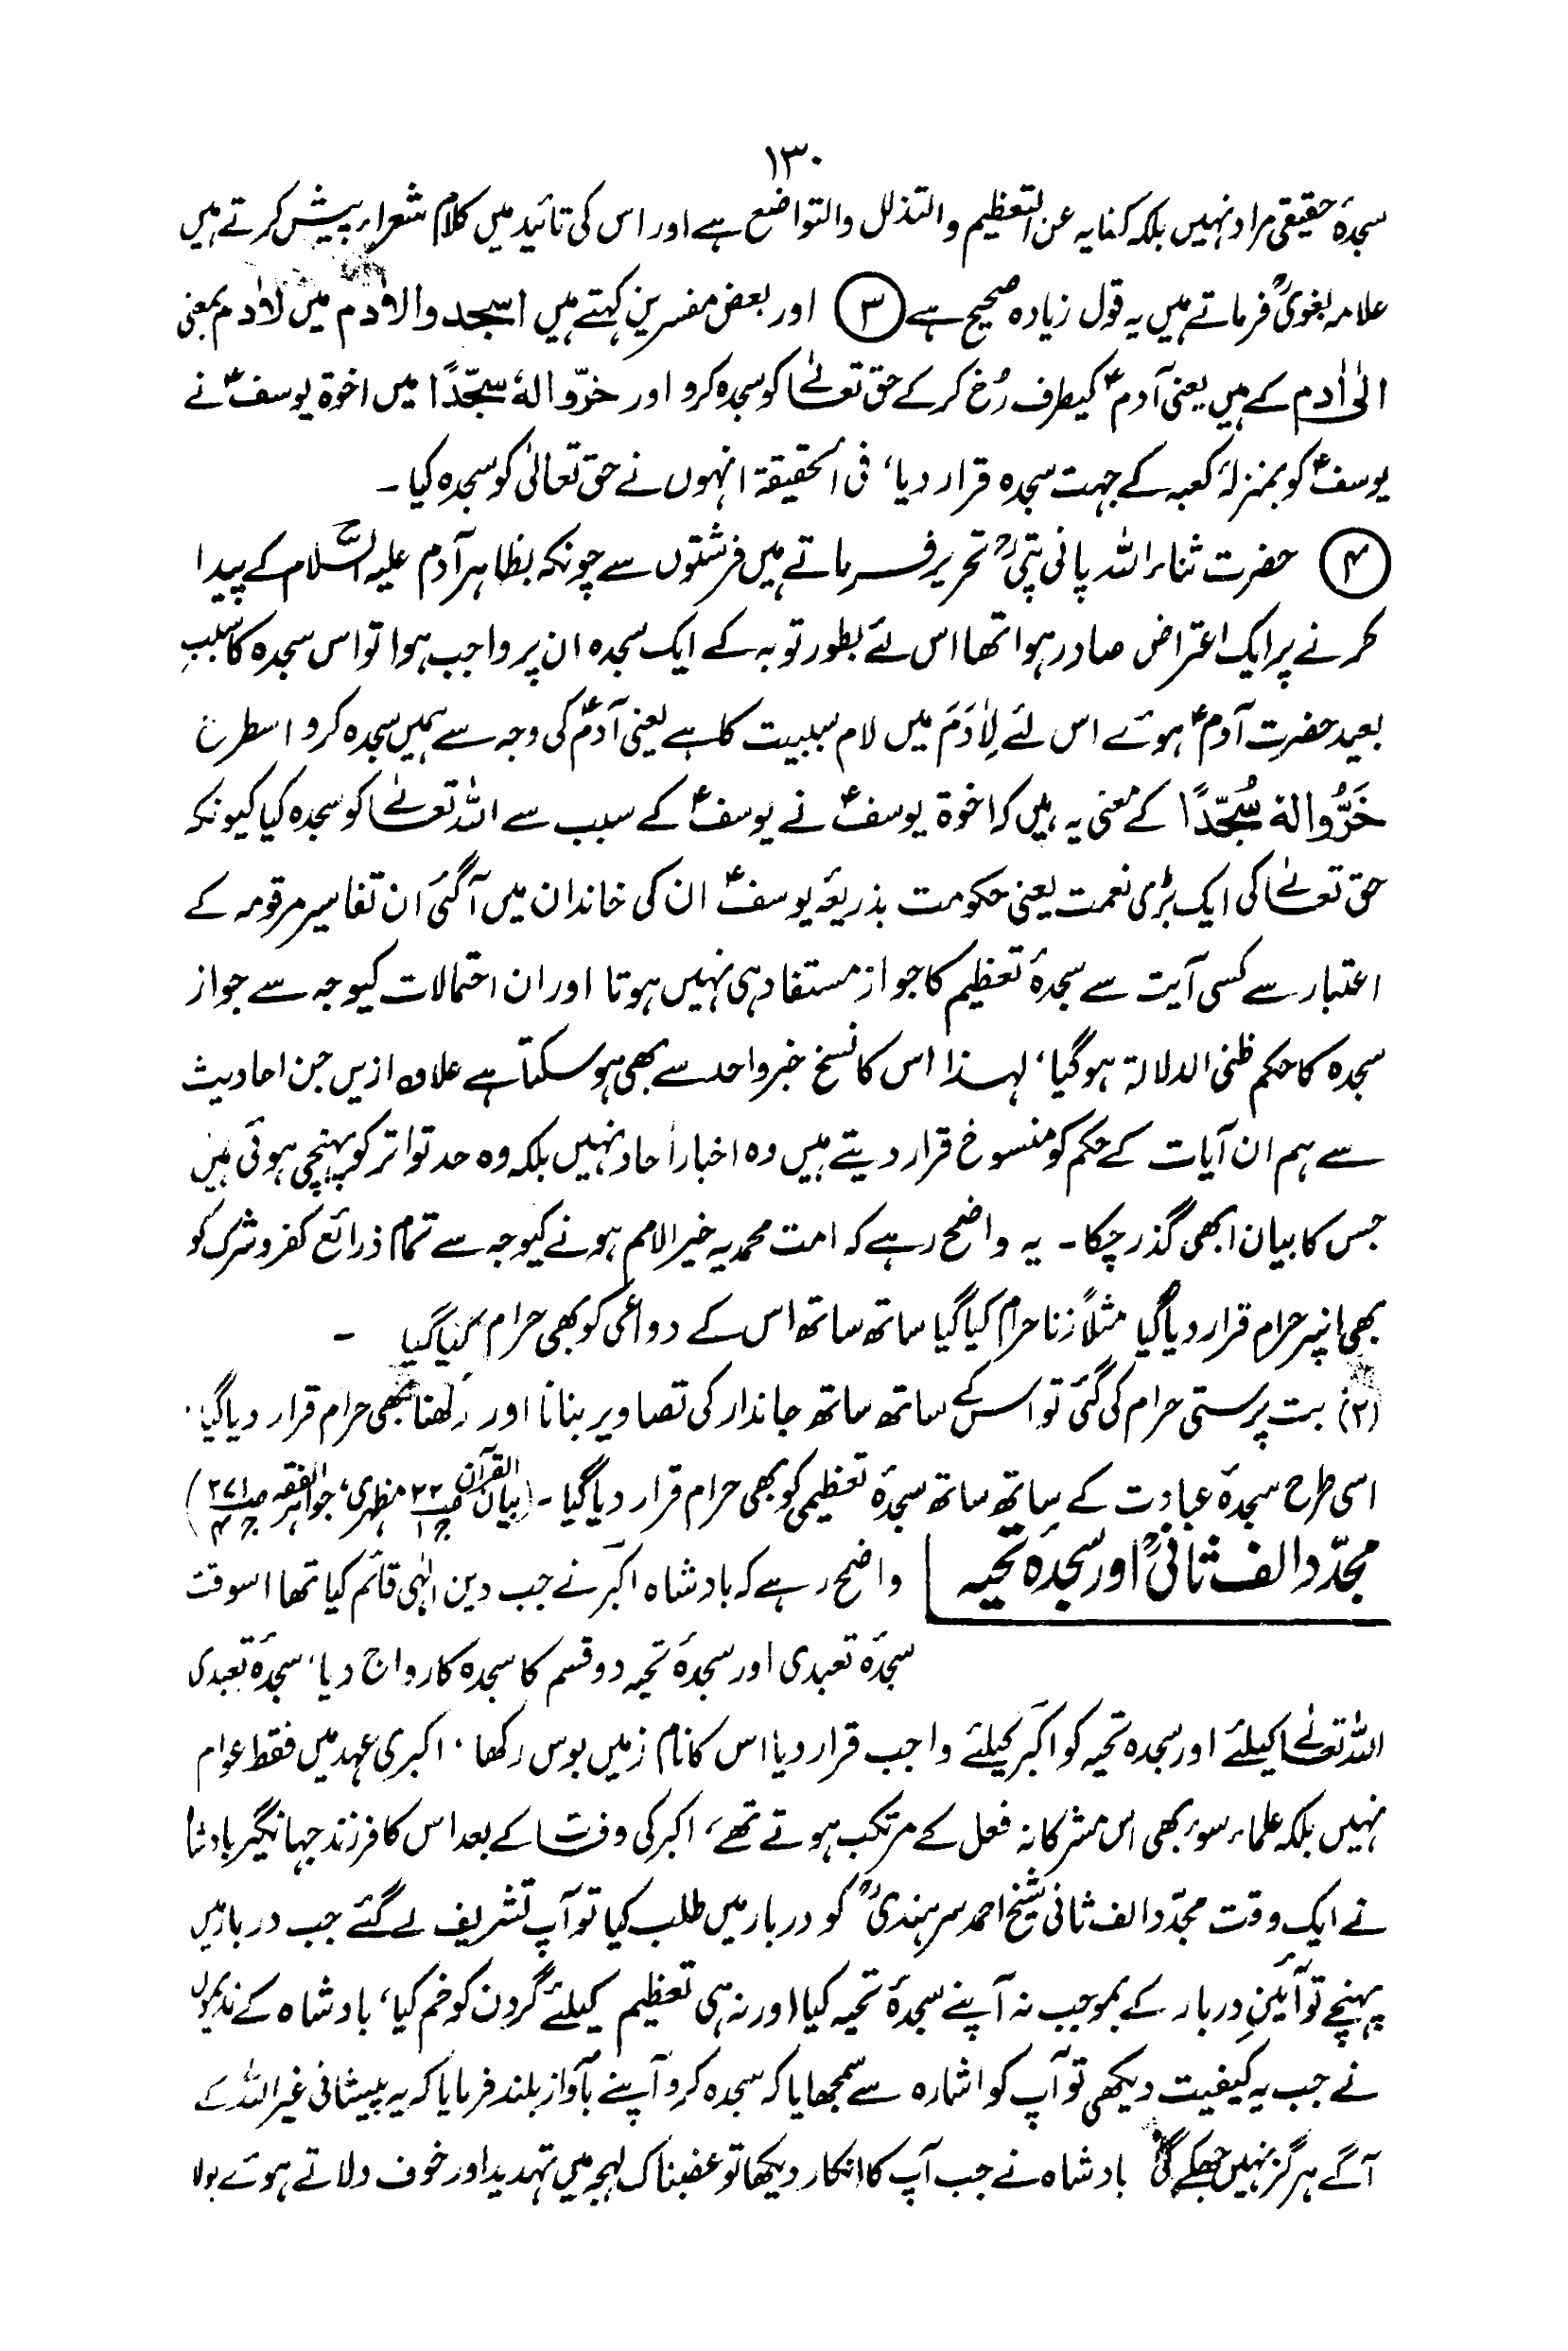 ۱۳۰
سجدۂ حقیقی مراد نہیں بلکہ کنایہ عن التعظیم والتذلل والتواضع ہے اور اس کی تائید میں کلام شعراء پیش کرتے ہیں
علامہ بغویؒ فرماتے ہیں یہ قول زیادہ صحیح ہے (۳) اور بعض مفسرین کہتے ہیں اسجدوا لاٰدم میں لاٰدم بمعنی
الیٰ اٰدم کے ہیں یعنی آدمؑ کیطرف رُخ کرکے حق تعالےٰ کو سجدہ کرو اور خرّوا لہٗ سجّدًا میں اخوۃ یوسفؑ نے
یوسفؑ کو بمنزلۂ کعبہ کے جہت سجدہ قرار دیا، فی الحقیقۃ انہوں نے حق تعالیٰ کو سجدہ کیا ۔
(۴) حضرت ثناء اللہ پانی پتیؒ تحریر فرماتے ہیں فرشتوں سے چونکہ بظاہر آدم علیہ السّلام کے پیدا
کرنے پر ایک اعتراض صادر ہوا تھا اس لئے بطور توبہ کے ایک سجدہ ان پر واجب ہوا تو اس سجدہ کا سبب
بعید حضرتِ آدمؑ ہوئے اس لئے لِاٰدَمَ میں لام سببیت کا ہے یعنی آدمؑ کی وجہ سے ہمیں سجدہ کرو اسطرح
خَرُّوا لہٗ سُجّدًا کے معنی یہ ہیں کہ اخوۃ یوسفؑ نے یوسفؑ کے سبب سے اللہ تعالےٰ کو سجدہ کیا کیونکہ
حق تعالےٰ کی ایک بڑی نعمت یعنی حکومت بذریعۂ یوسفؑ ان کی خاندان میں آگئی ان تفاسیر مرقومہ کے
اعتبار سے کسی آیت سے سجدۂ تعظیم کا جواز مستفاد ہی نہیں ہوتا اور ان احتمالات کیوجہ سے جواز
سجدہ کا حکم ظنی الدلالۃ ہوگیا، لہذا اس کا نسخ خبر واحد سے بھی ہو سکتا ہے علاوہ ازیں جن احادیث
سے ہم ان آیات کے حکم کو منسوخ قرار دیتے ہیں وہ اخبار اٰحاد نہیں بلکہ وہ حد تواتر کو پہنچی ہوئی ہیں
جس کا بیان ابھی گذر چکا ۔ یہ واضح رہے کہ امت محمدیہ خیر الامم ہونے کیوجہ سے تمام ذرائع کفر و شرک کو
بھی انپر حرام قرار دیا گیا مثلاً زنا حرام کیا گیا ساتھ ساتھ اس کے دواعی کو بھی حرام کیا گیا ۔
(۲) بت پرستی حرام کی گئی تو اس کے ساتھ ساتھ جاندار کی تصاویر بنانا اور رکھنا بھی حرام قرار دیا گیا.
اسی طرح سجدۂ عبادت کے ساتھ ساتھ سجدۂ تعظیمی کو بھی حرام قرار دیا گیا ۔ (بیان القرآن ص۲۲ ج۱ مظہری، جواہر الفقہ ص۲۷۱ ج۳)
مجدّد الف ثانیؒ اور سجدۂ تحیہ
واضح رہے کہ بادشاہ اکبر نے جب دین الٰہی قائم کیا تھا اسوقت
سجدۂ تعبدی اور سجدۂ تحیہ دو قسم کا سجدہ کا رواج دیا، سجدۂ تعبدی
اللہ تعالےٰ کیلئے اور سجدہ تحیہ کو اکبر کیلئے واجب قرار دیا اس کا نام زمیں بوس رکھا ، اکبری عہد میں فقط عوام
نہیں بلکہ علماء سوء بھی اس مشرکانہ فعل کے مرتکب ہوتے تھے، اکبر کی وفات کے بعد اس کا فرزند جہانگیر بادشاہ
نے ایک وقت مجدّد الف ثانی شیخ احمد سرہندیؒ کو دربار میں طلب کیا تو آپ تشریف لے گئے جب دربار میں
پہنچے تو آئینِ دربار کے بموجب نہ آپنے سجدۂ تحیہ کیا اور نہ ہی تعظیم کیلئے گردن کو خم کیا، بادشاہ کے ندیموں
نے جب یہ کیفیت دیکھی تو آپ کو اشارہ سے سمجھایا کہ سجدہ کرو آپنے بآواز بلند فرمایا کہ یہ پیشانی غیر اللہ کے
آگے ہرگز نہیں جھکے گی بادشاہ نے جب آپ کا انکار دیکھا تو غضبناک لہجہ میں تہدید اور خوف دلاتے ہوئے بولا